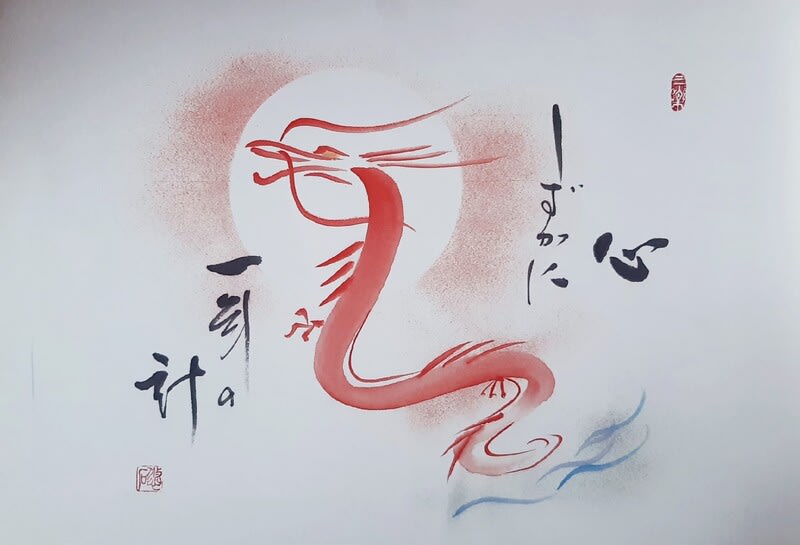 心
しずかに
一年の
計
三樂